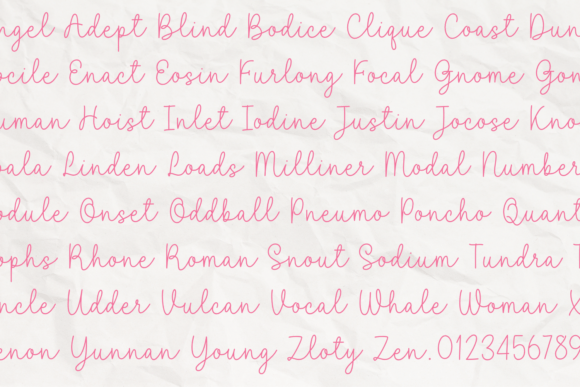 ngel Adept Blind Bodice Clique Coast Dun
ocile Enact Eosin Furlong Focal Gnome Gon
uman Hoist Inlet Iodine Justin Jocose Kno
oala Linden Loads Milliner Modal Number
odule Onset Oddball Pneumo Poncho Quant
ophs Rhone Roman Snout Sodium Tundra T
ncle Udder Vulcan Vocal Whale Woman X
enon Yunnan Young Zloty Zen. 0123456789